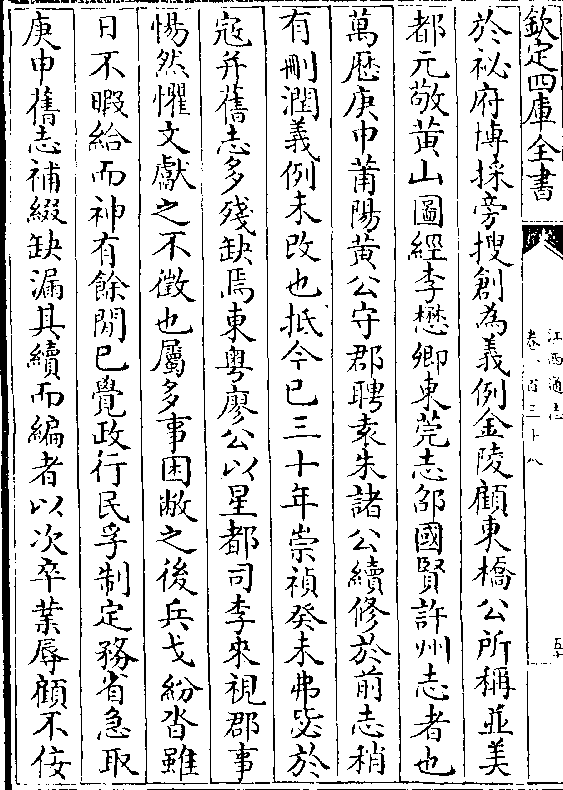 欽定四庫全書
江西通志
卷一百三十八
五十
於祕府博採旁搜創為義例金陵顧東橋公所稱並美
都元敬黃山圖經李懋卿東莞志邵國賢許州志者也
萬歴庚申莆陽黃公守郡聘袁朱諸公續修於前志稍
有刪潤義例未改也抵今已三十年崇禎癸未弗毖於
宼并舊志多殘缺焉東粤廖公以星都司李來視郡事
惕然懼文獻之不徵也屬多事困敝之後兵戈紛沓雖
日不暇給而神有餘閒已覺政行民孚制定務省急取
庚申舊志補綴缺漏其續而編者以次卒業辱顧不佞